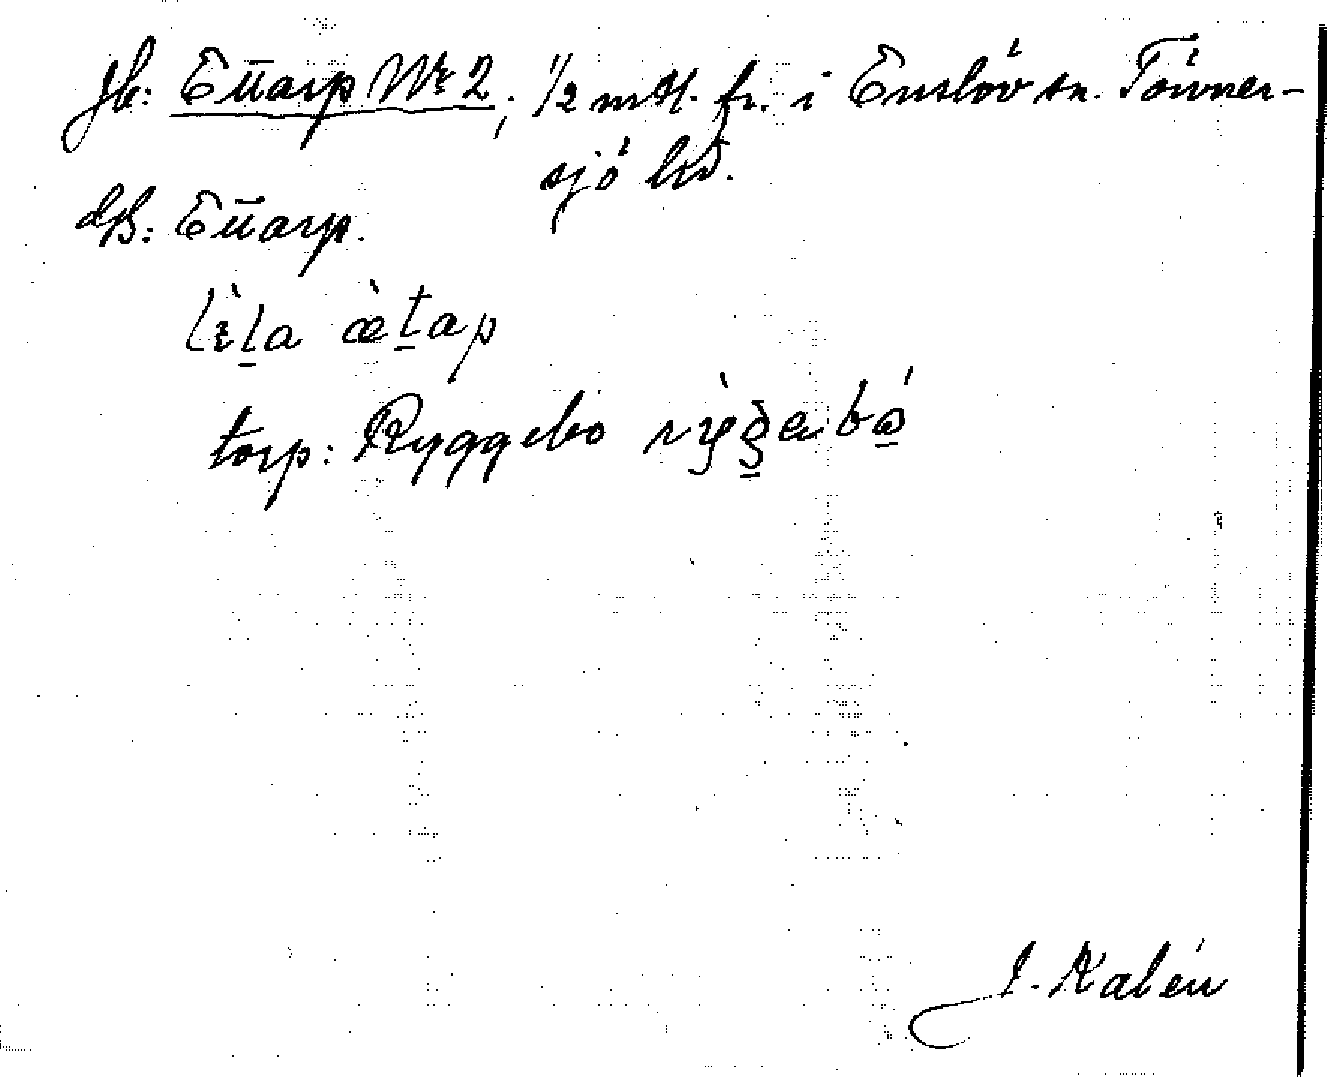 Jb: Ettarp No 2, 1/2 mtl. fr. i Enslöv sn. Tönner-
sjö hd.
dB: Ettarp.
lɩ̀la æ̀tap
torp: Ryggebo
J. Kalén